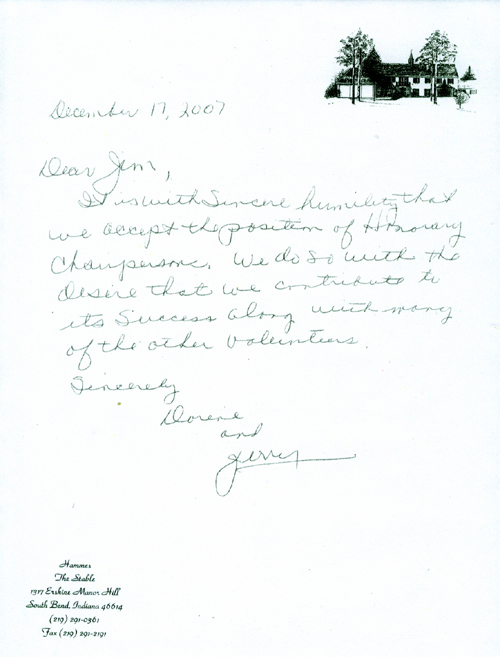 December 17, 2007
Dear Jim,
It is with Sincere humility that
we accept the position of Honorary
Chairpersons. We do so with the
desire that we contribute to
its Success along with many
of the other Volunteers.
Sincerely
Dorene
and
Jerry
Hammes
The Stable
1317 Erskine Manor Hill
South Bend, Indiana 46614
(219) 291-0361
Fax (219) 291-2191